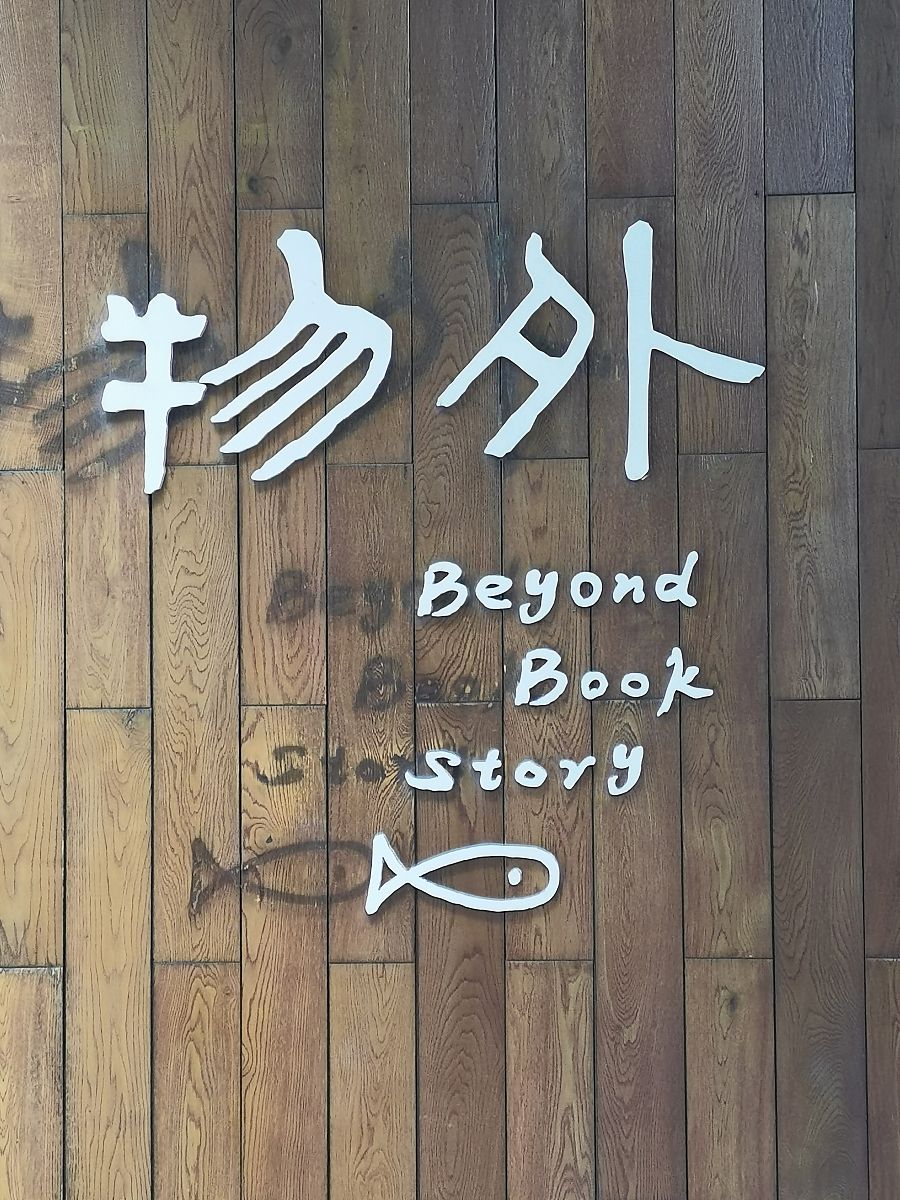 物外
Beyond
Book
Story